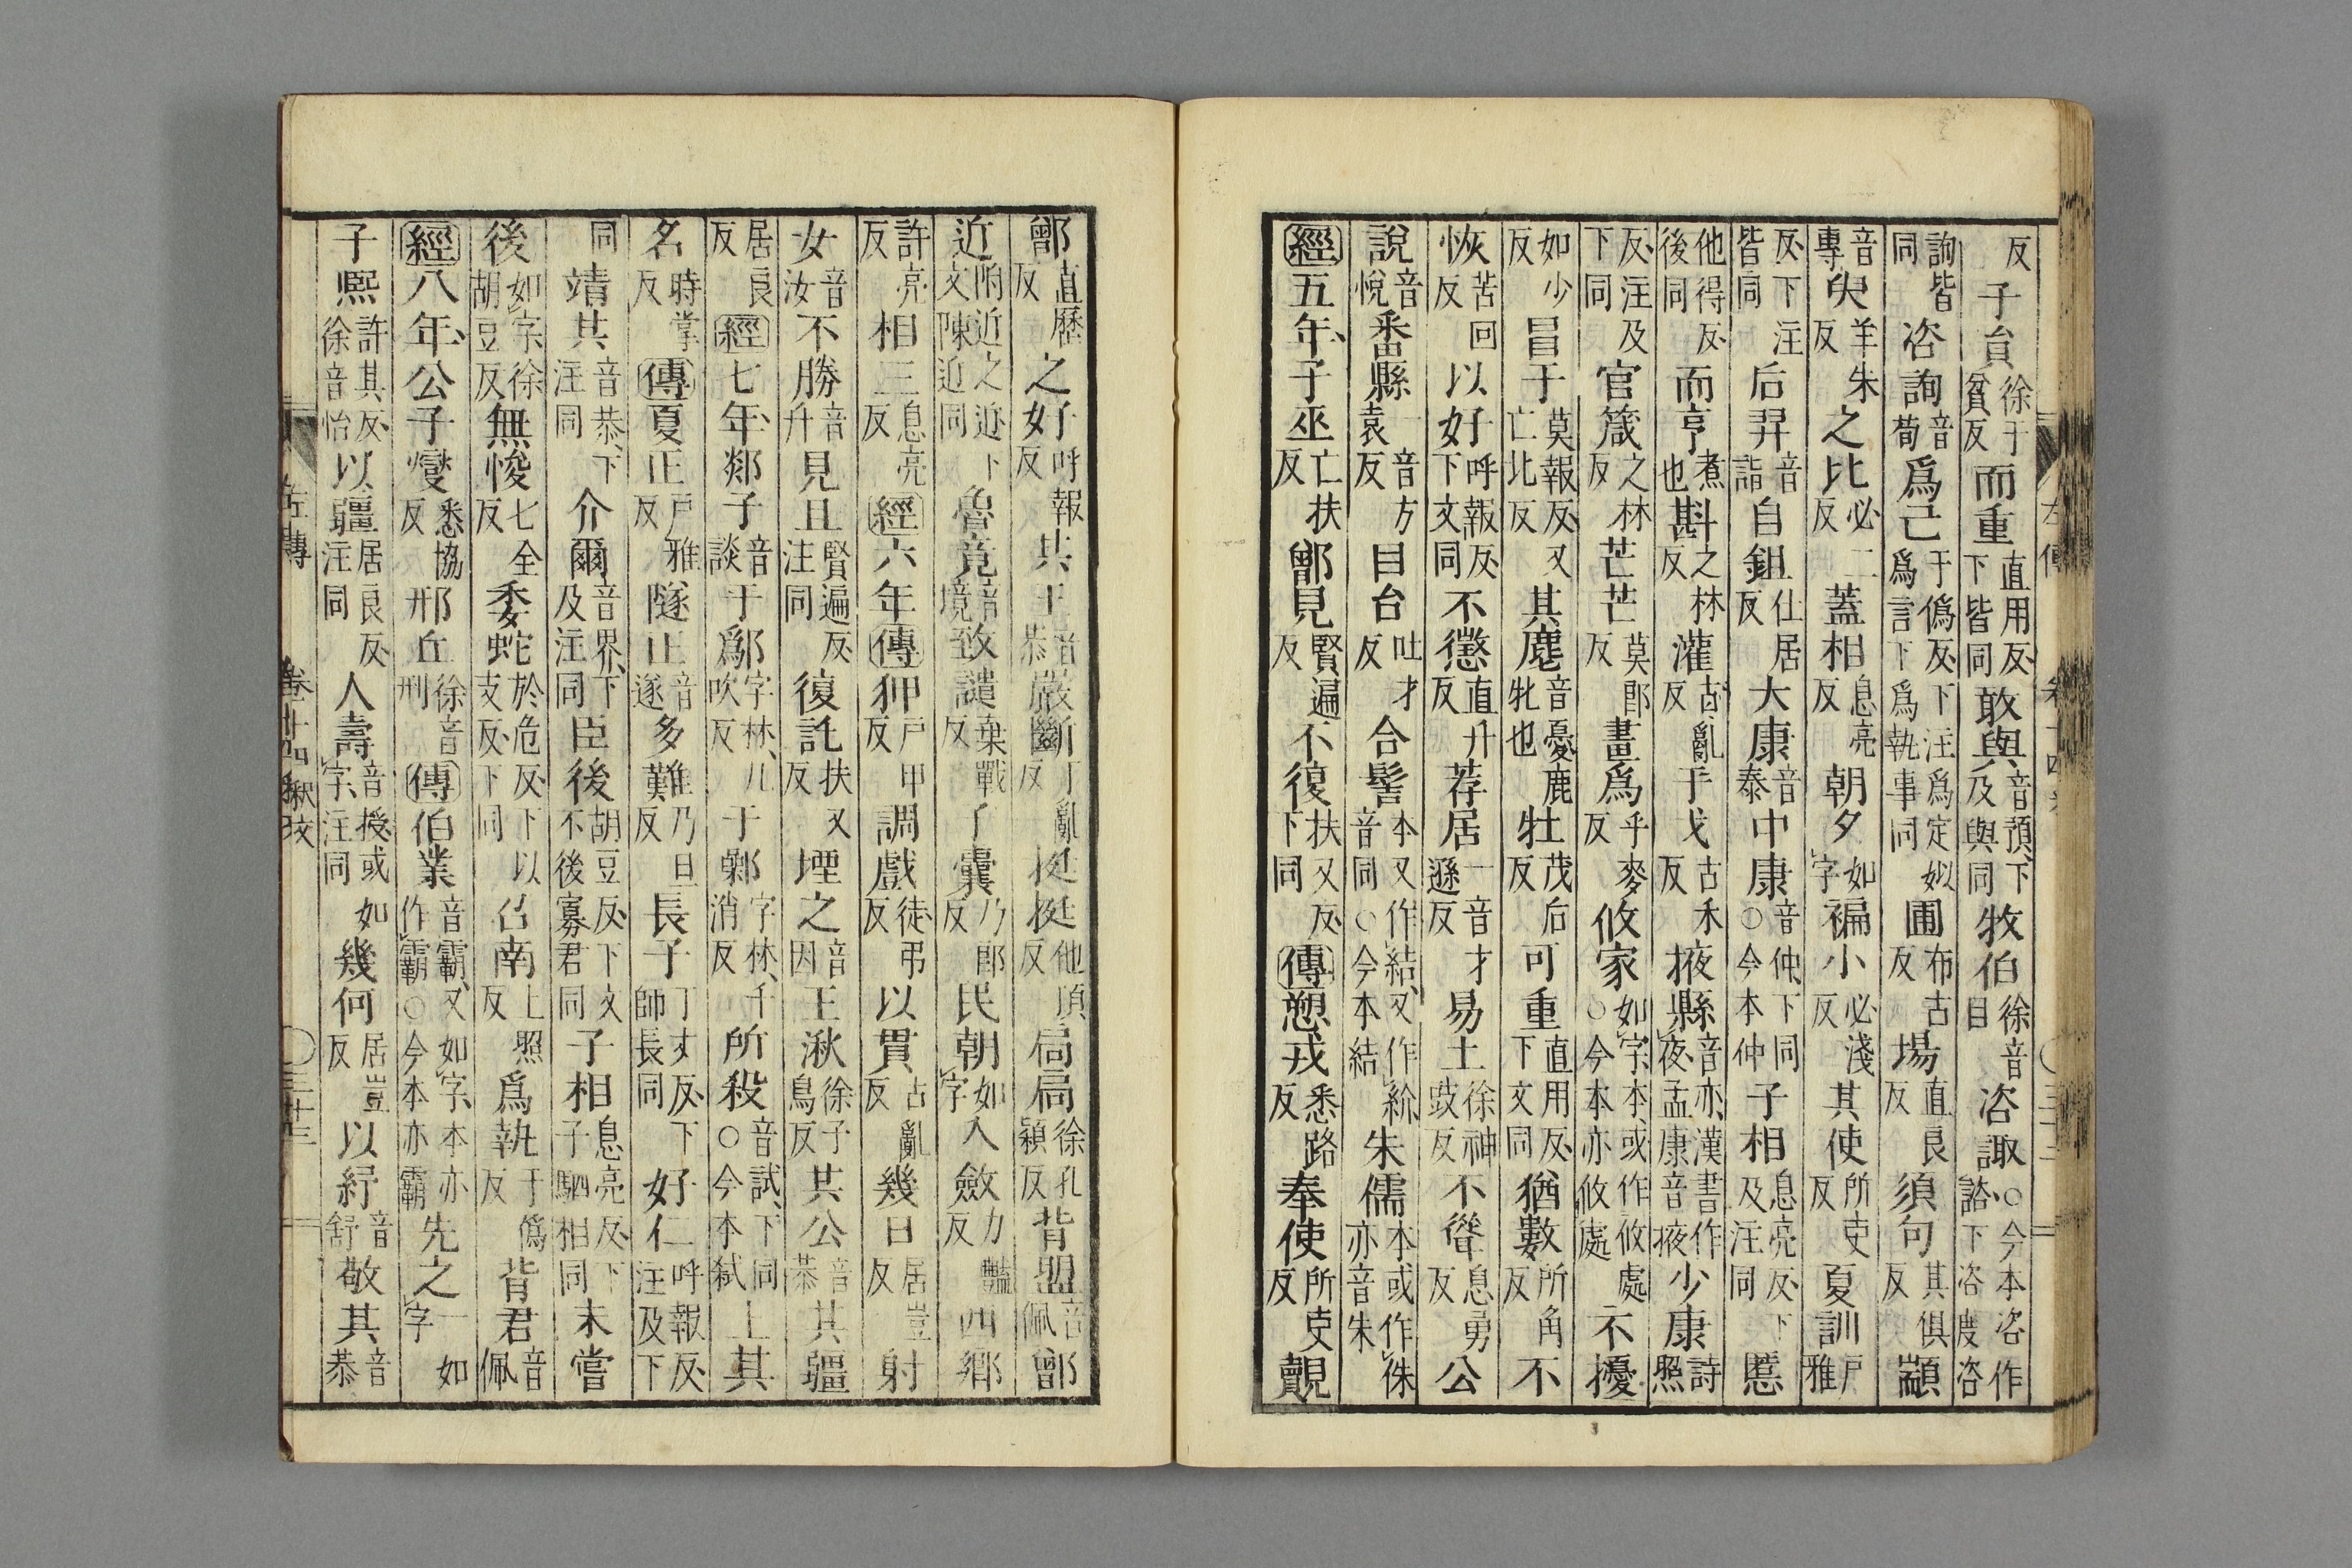 反子員徐于貧反而重直用反下皆同敢與音預下及與同牧伯徐音目咨諏○今本咨作諮下咨度咨
詢皆同咨詢音荀爲己于僞反下注爲定姒爲言下爲執事同圃布古反場直良反須句其俱反顓
音專臾羊朱反之比必二反蓋相息亮反朝夕如字褊小必淺反其使所吏反夏訓戶雅
反下注皆同后羿音詣自鉏仕居反大康音泰中康音仲下同○今本仲子相息亮反下及注同慝
他得反後同而亨煮也斟之林反灌古亂反于戈古禾反掖縣音亦漢書作夜孟康音掖少康詩照
反注及下同官箴之林反芒芒莫郎反畫爲乎麥反攸家如字本或作攸處○今本亦攸處不擾
如少反冒于莫報反又亡北反其麀音憂鹿牝也牡茂后反可重直用反下文同猶數所角反不
恢苦回反以好呼報反下文同不懲直升反荐居一音才遜反易土徐神豉反不聳息勇反公
說音悅番縣一音方袁反目台吐才反合髻本又作結又作紒音同○今本結朱儒本或作侏亦音朱
經五年子巫亡扶反鄫見賢遍反不復扶又反下同傳愬戎悉路反奉使所吏反覿
鄫直歷反之好呼報反共王音恭嚴斷丁亂反挺挺他頂反局局徐孔穎反背盟音佩鄫
近附近之近下文陳近同魯竟音境致譴棄戰反子囊乃郎反民朝如字入斂力豔反西鄉
許亮反相三息亮反經六年傳狎戶甲反調戲徒弔反以貫古亂反幾日居豈反射
女音汝不勝音升見且賢遍反注同復託扶又反堙之音因王湫徐子鳥反共公音恭其疆
居良反經七年郯子音談于鄬字林几吹反于鄵字林千消反所殺音試下同○今本弒上其
名時掌反傳夏正戶雅反隧正音遂多難乃旦反長子丁丈反下師長同好仁呼報反注及下
同靖共音恭下注同介爾音界下及注同臣後胡豆反下文不後寡君同子相息亮反下子駟相同未嘗
後如字徐胡豆反無悛七全反委蛇於危反下以支反下同召南上照反爲執于僞反背君音佩
經八年公子燮悉協反邢丘徐音刑傳伯業音霸又如字本亦作霸○今本亦霸先之一如字
子熙許其反徐音怡以疆居良反注同人壽音授或如字注同幾何居豈反以紓音舒敬其音恭
左傳 卷十四 三十三